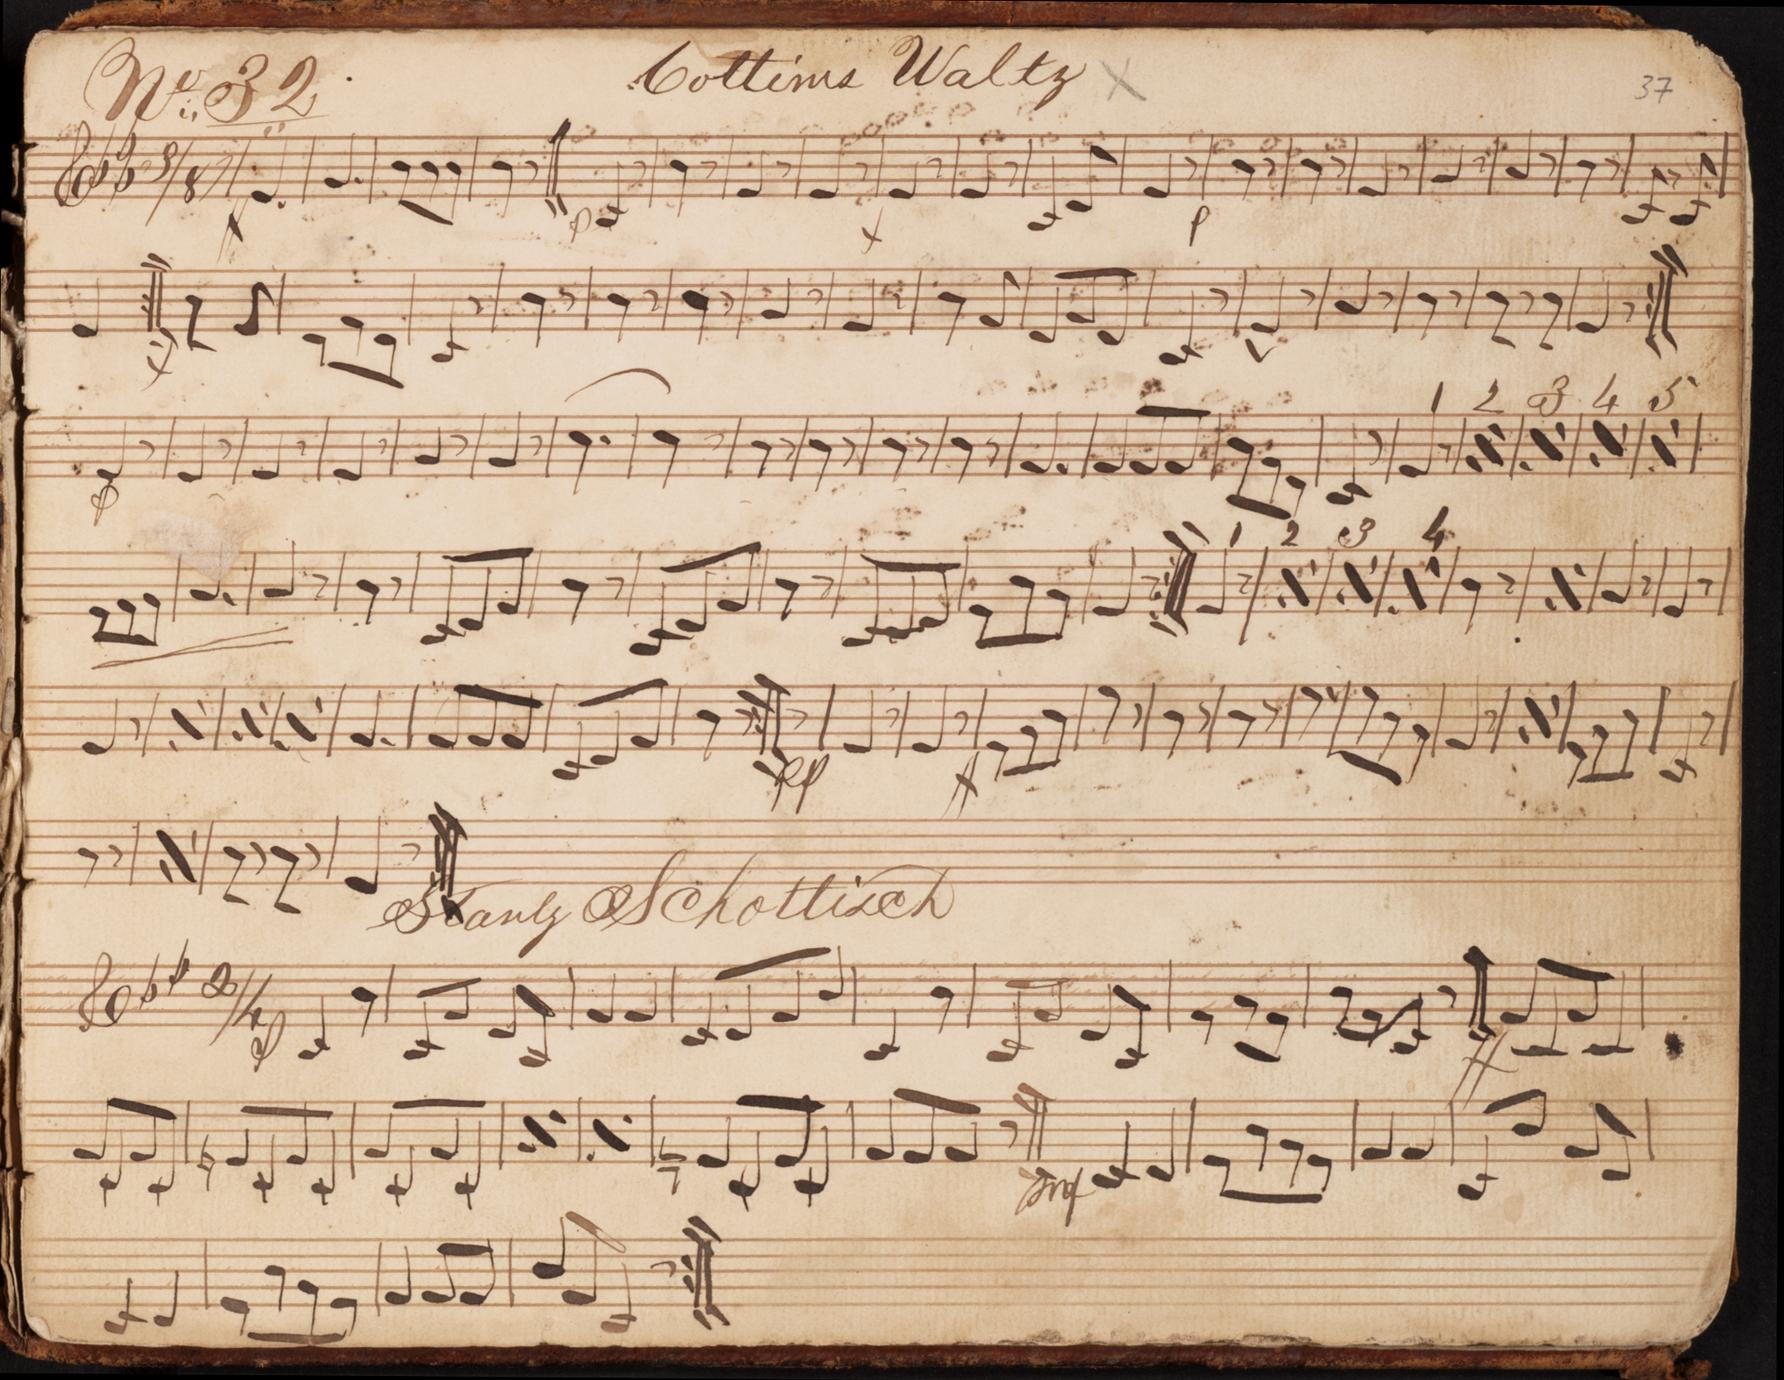 No. 32. Cottims Waltz 37
3/8
p p
1 2 3 4 5
p
1 2 3 4
pp
Schottisch
2/4 p